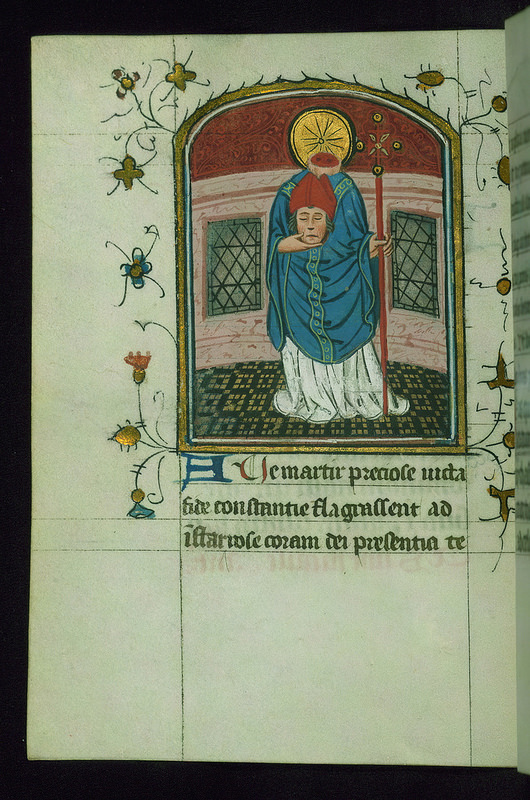 AUe martir preciose iucta
fide constantie flagrassent ad
coram dei presentia te